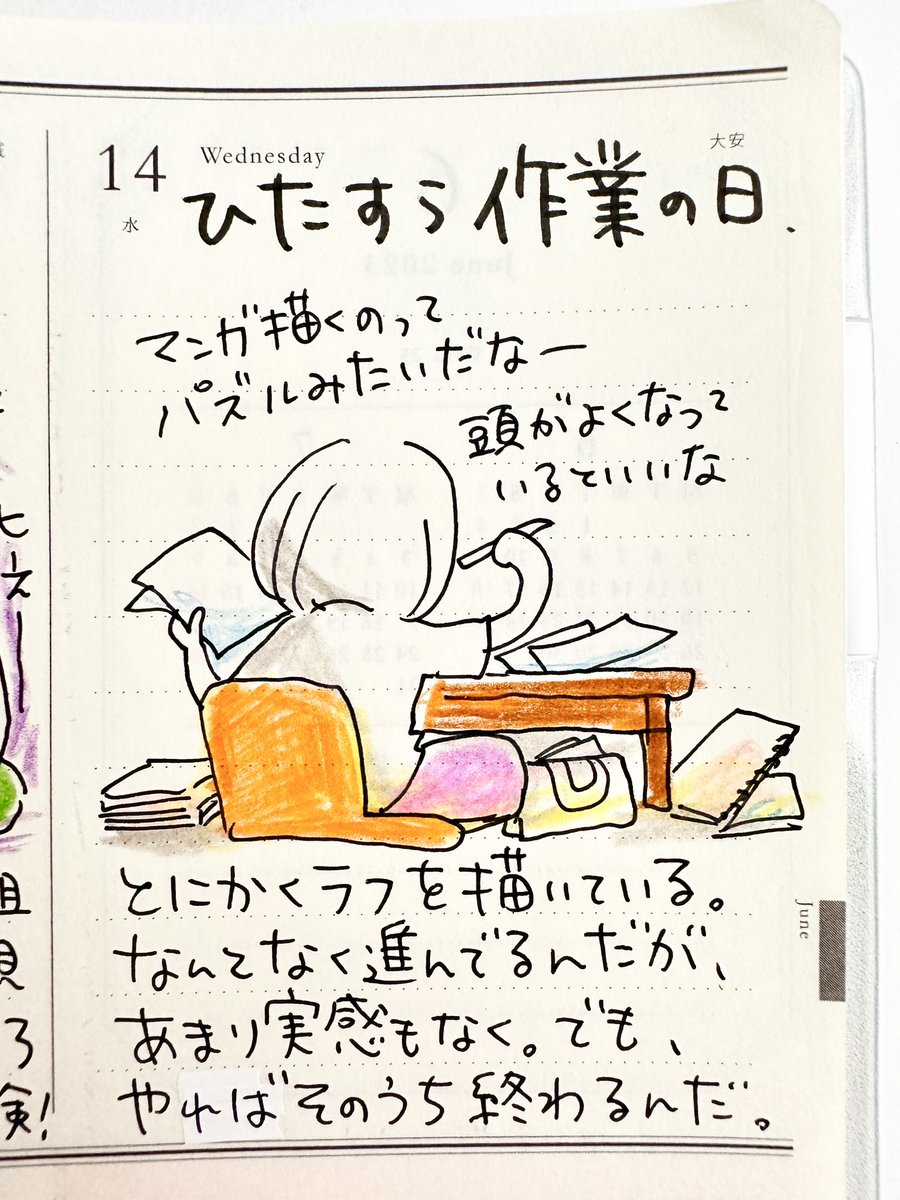 14 Wednesday 大安
水
ひたすら作業の日.
マンガ描くのって
パズルみたいだなー
頭がよくなって
いるといいな
とにかくラフを描いている。
なんとなく進んでるんだが、
あまり実感もなく。でも、
やればそのうち終わるんだ。
June
ヒ
え
ー
見
ろ
!